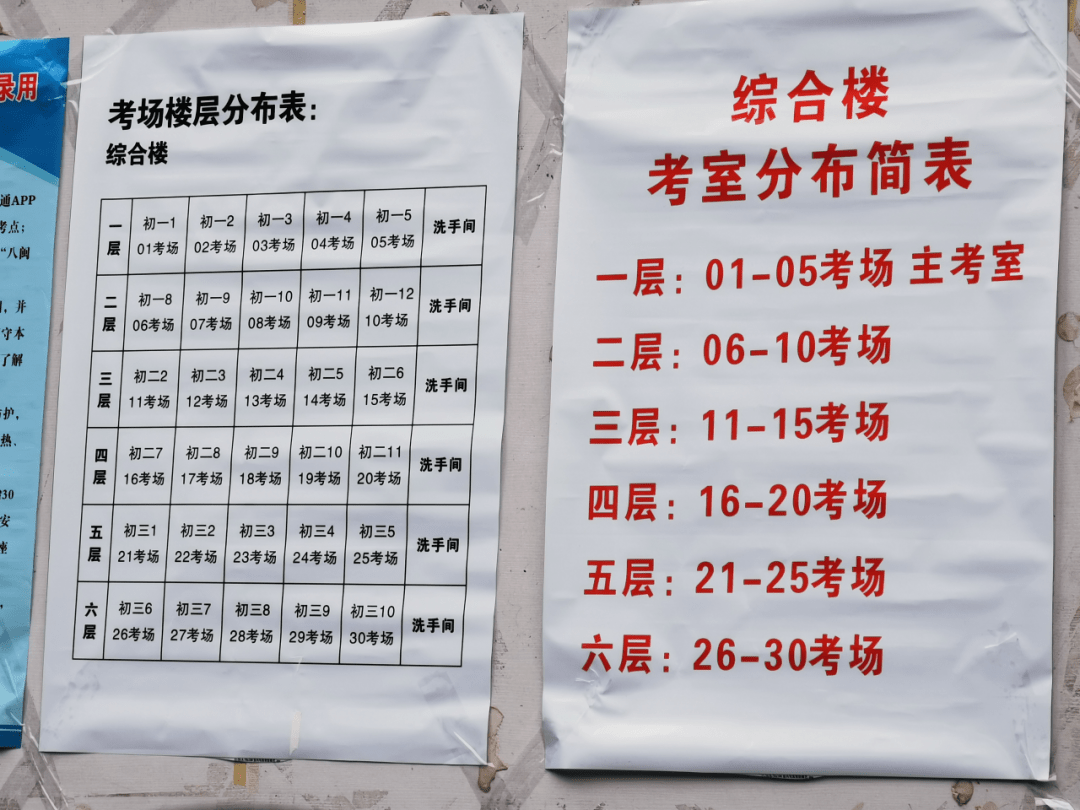 录用
通APP
考点;
“八闽
，并
守本
了解
护，
热、
安
座
考场楼层分布表：
综合楼
一层 初一1 初一2 初一3 初一4 初一5 洗手间
01考场 02考场 03考场 04考场 05考场
二层 初一8 初一9 初一10 初一11 初一12 洗手间
06考场 07考场 08考场 09考场 10考场
三层 初二2 初二3 初二4 初二5 初二6 洗手间
11考场 12考场 13考场 14考场 15考场
四层 初二7 初二8 初二9 初二10 初二11 洗手间
16考场 17考场 18考场 19考场 20考场
五层 初三1 初三2 初三3 初三4 初三5 洗手间
21考场 22考场 23考场 24考场 25考场
六层 初三6 初三7 初三8 初三9 初三10 洗手间
26考场 27考场 28考场 29考场 30考场
综合楼
考室分布简表
一层：01-05考场 主考室
二层：06-10考场
三层：11-15考场
四层：16-20考场
五层：21-25考场
六层：26-30考场